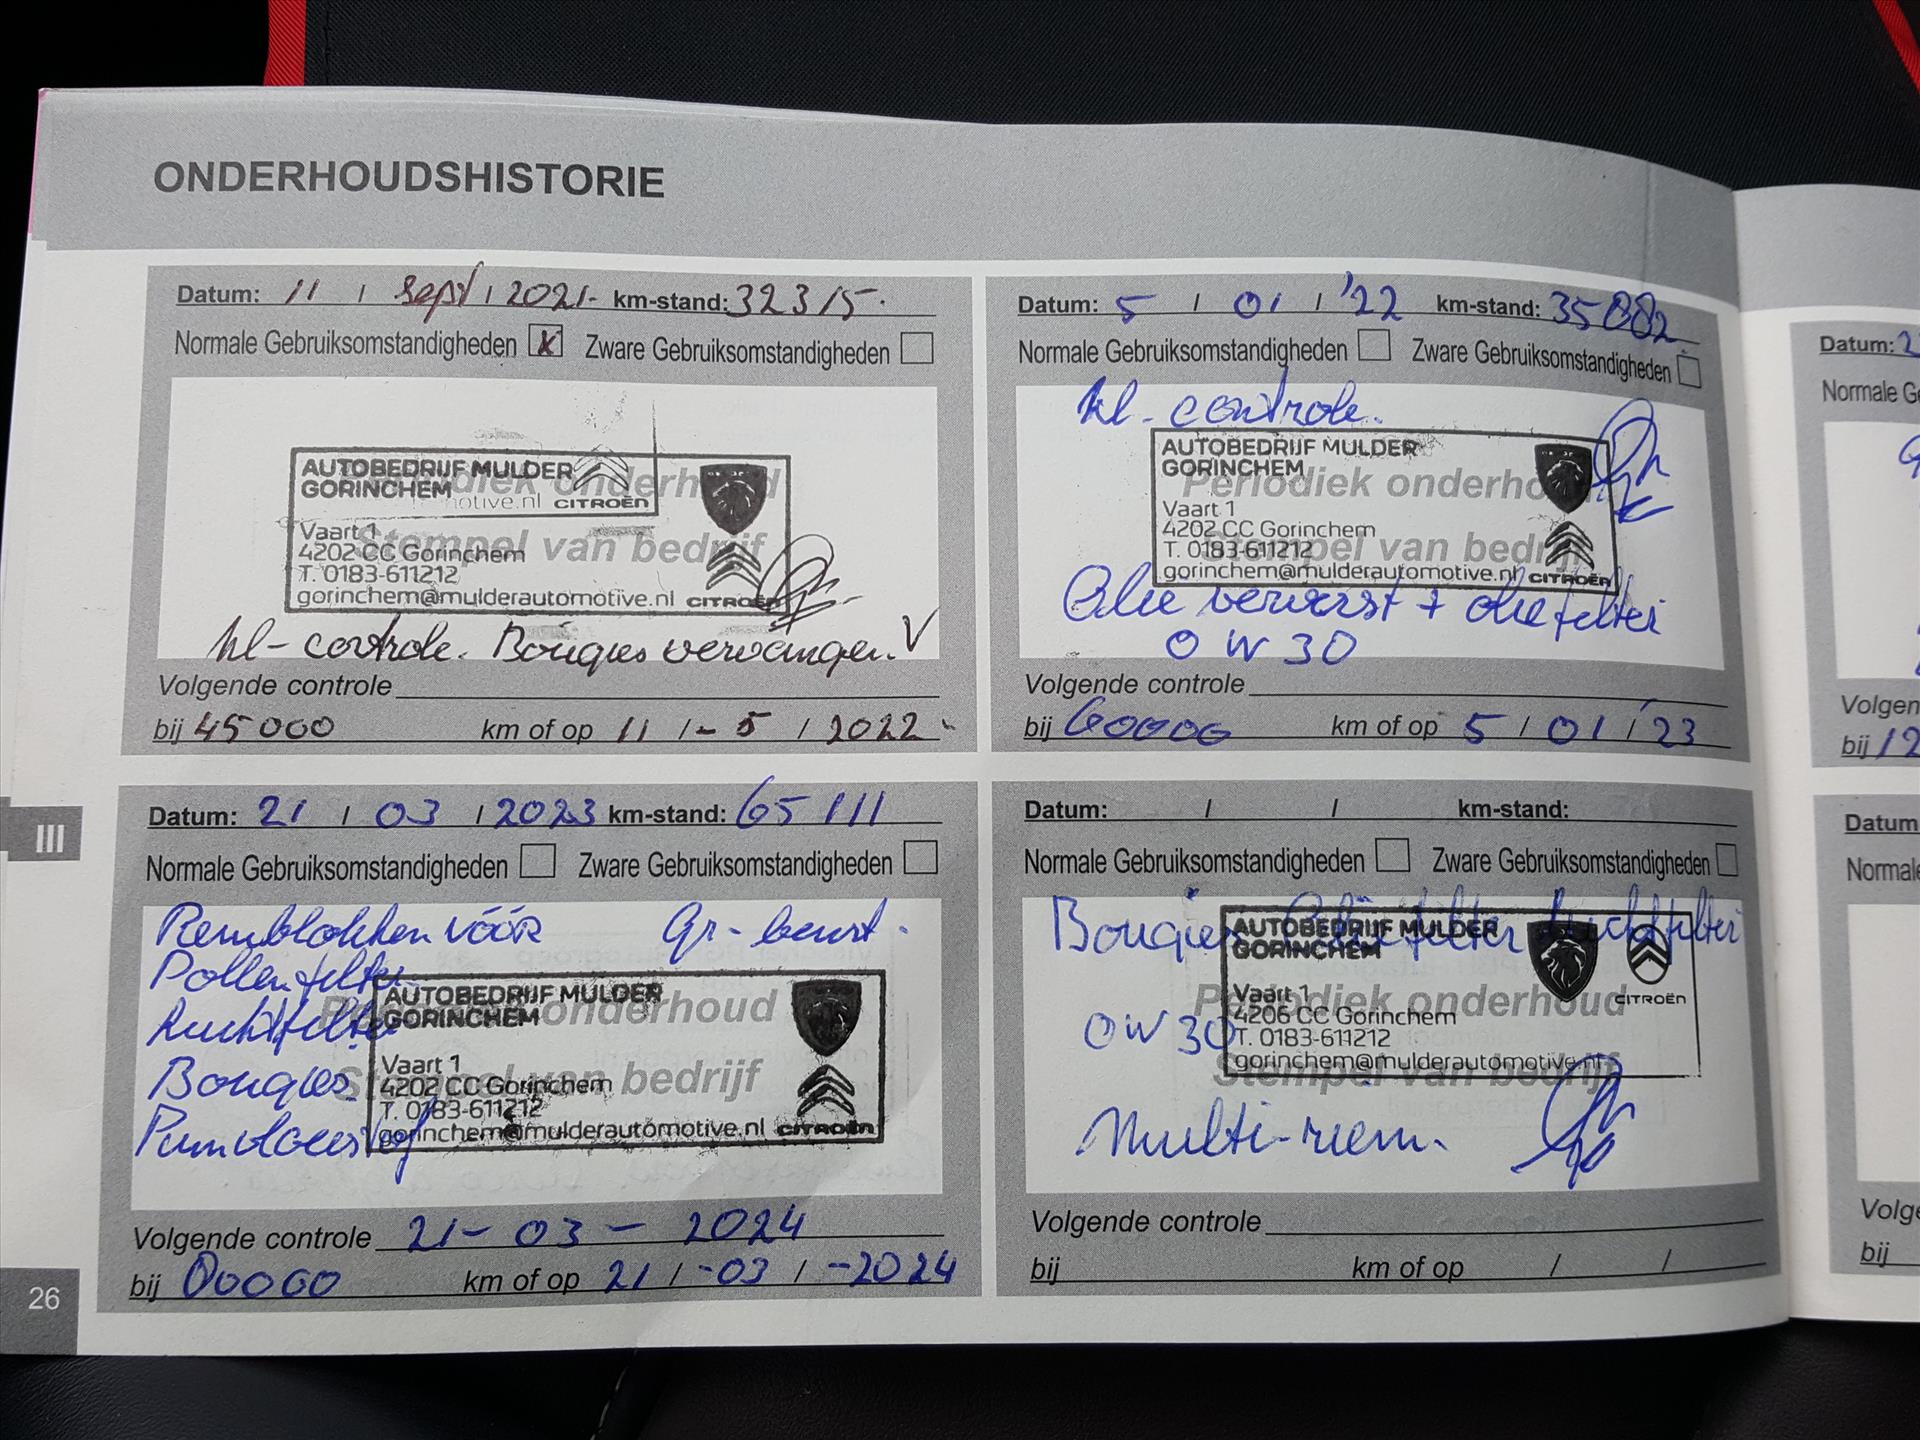 ONDERHOUDSHISTORIE
Datum: 11 / sept / 2021 - km-stand: 32315.
Normale Gebruiksomstandigheden X Zware Gebruiksomstandigheden
AUTOBEDRIJF MULDER
GORINCHEM
CITROËN
Periodiek onderhoud
Stempel van bedrijf
Vaart 1
4202 CC Gorinchem
T. 0183-611212
gorinchem@mulderautomotive.nl CITROËN
kl-controle. Bougies vervangen. V
Volgende controle
bij 45000 km of op 11 / - 5 / 2022 -
Datum: 5 / 01 / '22 km-stand:
Normale Gebruiksomstandigheden Zware Gebruiksomstandigheden
kl-controle.
AUTOBEDRIJF MULDER
GORINCHEM
Periodiek onderhoud
Stempel van bedrijf
Vaart 1
4202 CC Gorinchem
T. 0183-611212
gorinchem@mulderautomotive.nl CITROËN
Olie ververst + oliefilter
0 W 30
Volgende controle
bij 60000 km of op 5 / 01 / '23
Datum: 21 / 03 / 2023 km-stand: 65111
Normale Gebruiksomstandigheden Zware Gebruiksomstandigheden
Remblokken vóór Gr-beurt.
Pollenfilter
Luchtfilter
Bougies
AUTOBEDRIJF MULDER
GORINCHEM
Periodiek onderhoud
Stempel van bedrijf
Vaart 1
4202 CC Gorinchem
T. 0183-611212
gorinchem@mulderautomotive.nl CITROËN
Volgende controle 21 - 03 - 2024
bij km of op 21 / - 03 / - 2024
Datum: / / km-stand:
Normale Gebruiksomstandigheden Zware Gebruiksomstandigheden
Bougies Oliefilter Luchtfilter
AUTOBEDRIJF MULDER
GORINCHEM
CITROËN
Periodiek onderhoud
Stempel van bedrijf
Vaart 1
4206 CC Gorinchem
T. 0183-611212
gorinchem@mulderautomotive.nl
0 W 30
Multi-riem.
Volgende controle
bij km of op / /
III
26
Datum: 2
Normale G
Volgen
bij 12
Datum
Normale
Volge
bij